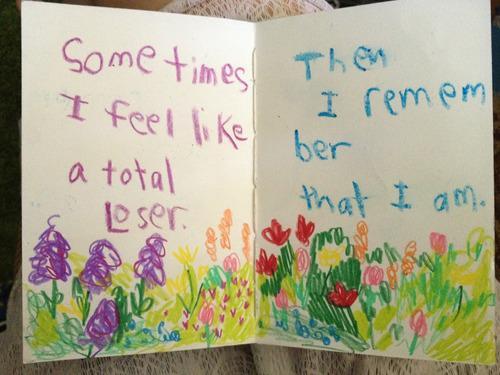 Sometimes
I feel like
a total
Loser.
Then
I remem
ber
that I am.